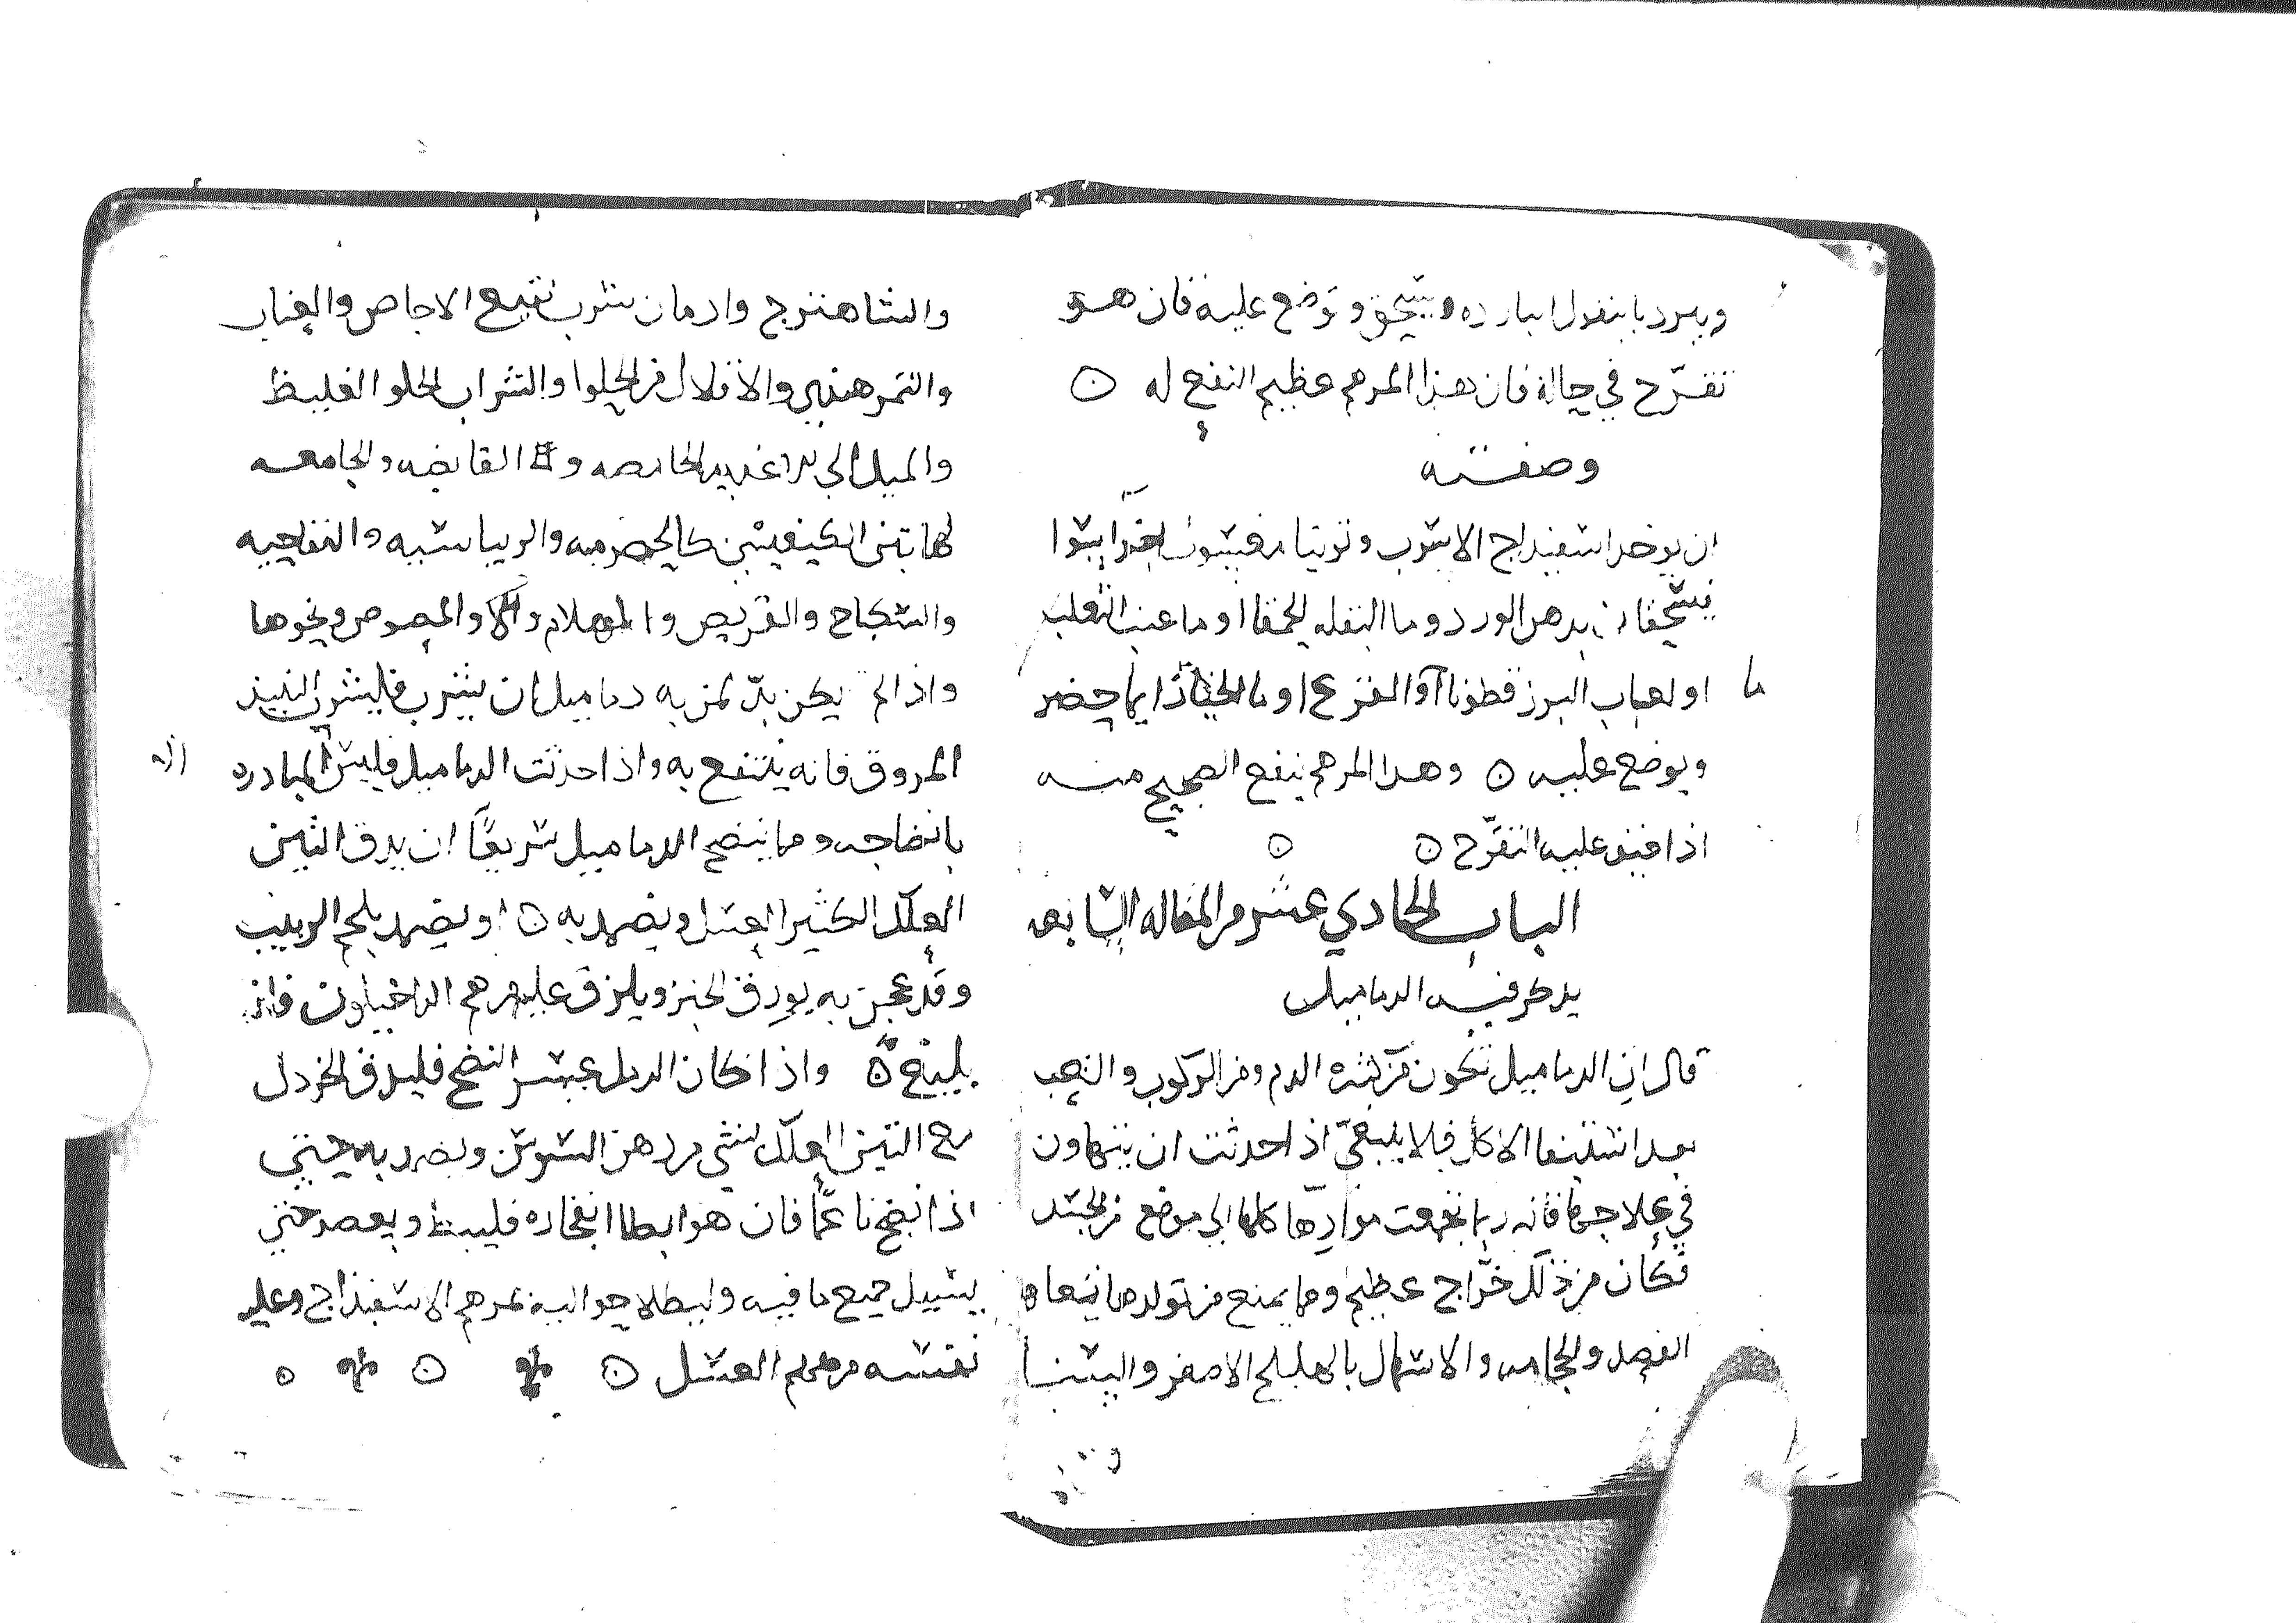 ويبرد بالبقول البارده ويسحق وتوضع عليه فان هو
تقرّح في حالة فان هذا المرهم عظيم النفع له
وصفته
ان يوخد اسفيداج الاسرب وتوتيا مغسول اجزا سوا
فيسحقان بدهن الورد وما البقله الحمقا او ما عنب الثعلب
ما
او لعاب البزرقطونا او القرع او ما الخيار ايما حضر
ويوضع عليه وهدا المرهم ينفع الصحيح منه
اذا خيف عليه التقرّح
الباب الحادي عشر من المقاله السابعه
يدكر فيه الدماميل
قال ان الدماميل تكون من كثرة الدم ومن الركوب والتعب
بعد استيفا الاكل فلا ينبغي اذا حدثت ان يتهاون
في علاجها فانه ربما تجمعت موادها كلها الي موضع من الجسد
فكان من ذلك خرّاج عظيم ومما يمنع من تولدها
الفصد والحجامه والاسهال بالهليلج الاصفر والسنا
والشاهترج وادمان شرب نقيع الاجاص والعناب
والتمر هندي والاقلال من الحلوا والشراب الحلو الغليظ
والميل الي الاغديه الحامضه و القابضه والجامعه
لهاتين الكيفيتين كالحصرميه والريباسيه والتفاحيه
والسكباج والقريص والهلام والمصوص ونحوها
واذا لم يكن بدّ لمن به دماميل ان يشرب فليشرب النبيذ
المروق فانه ينتفع به واذا حدثت الدماميل المبادره
بانضاجه ومما ينضج الدماميل سريعًا ان يدق التين
العلك الكثير العسل ويضمد به او يضمد بلحم الزبيب
وقد عجن به بورق الخبز ويلزق عليه مرهم الداخيلون فانه
بليغ واذا كان الدمل عسر النضج فليدق الخردل
مع التين العلك بشي من دهن السوسن ويضمد به حتي
اذا نضج ناعمًا فان هو ابطا انفجاره فليبط ويعصر حتي
يسيل جميع ما فيه وليطلا حواليه بمرهم الاسفيداج وعلي
نفسه مرهم العسل